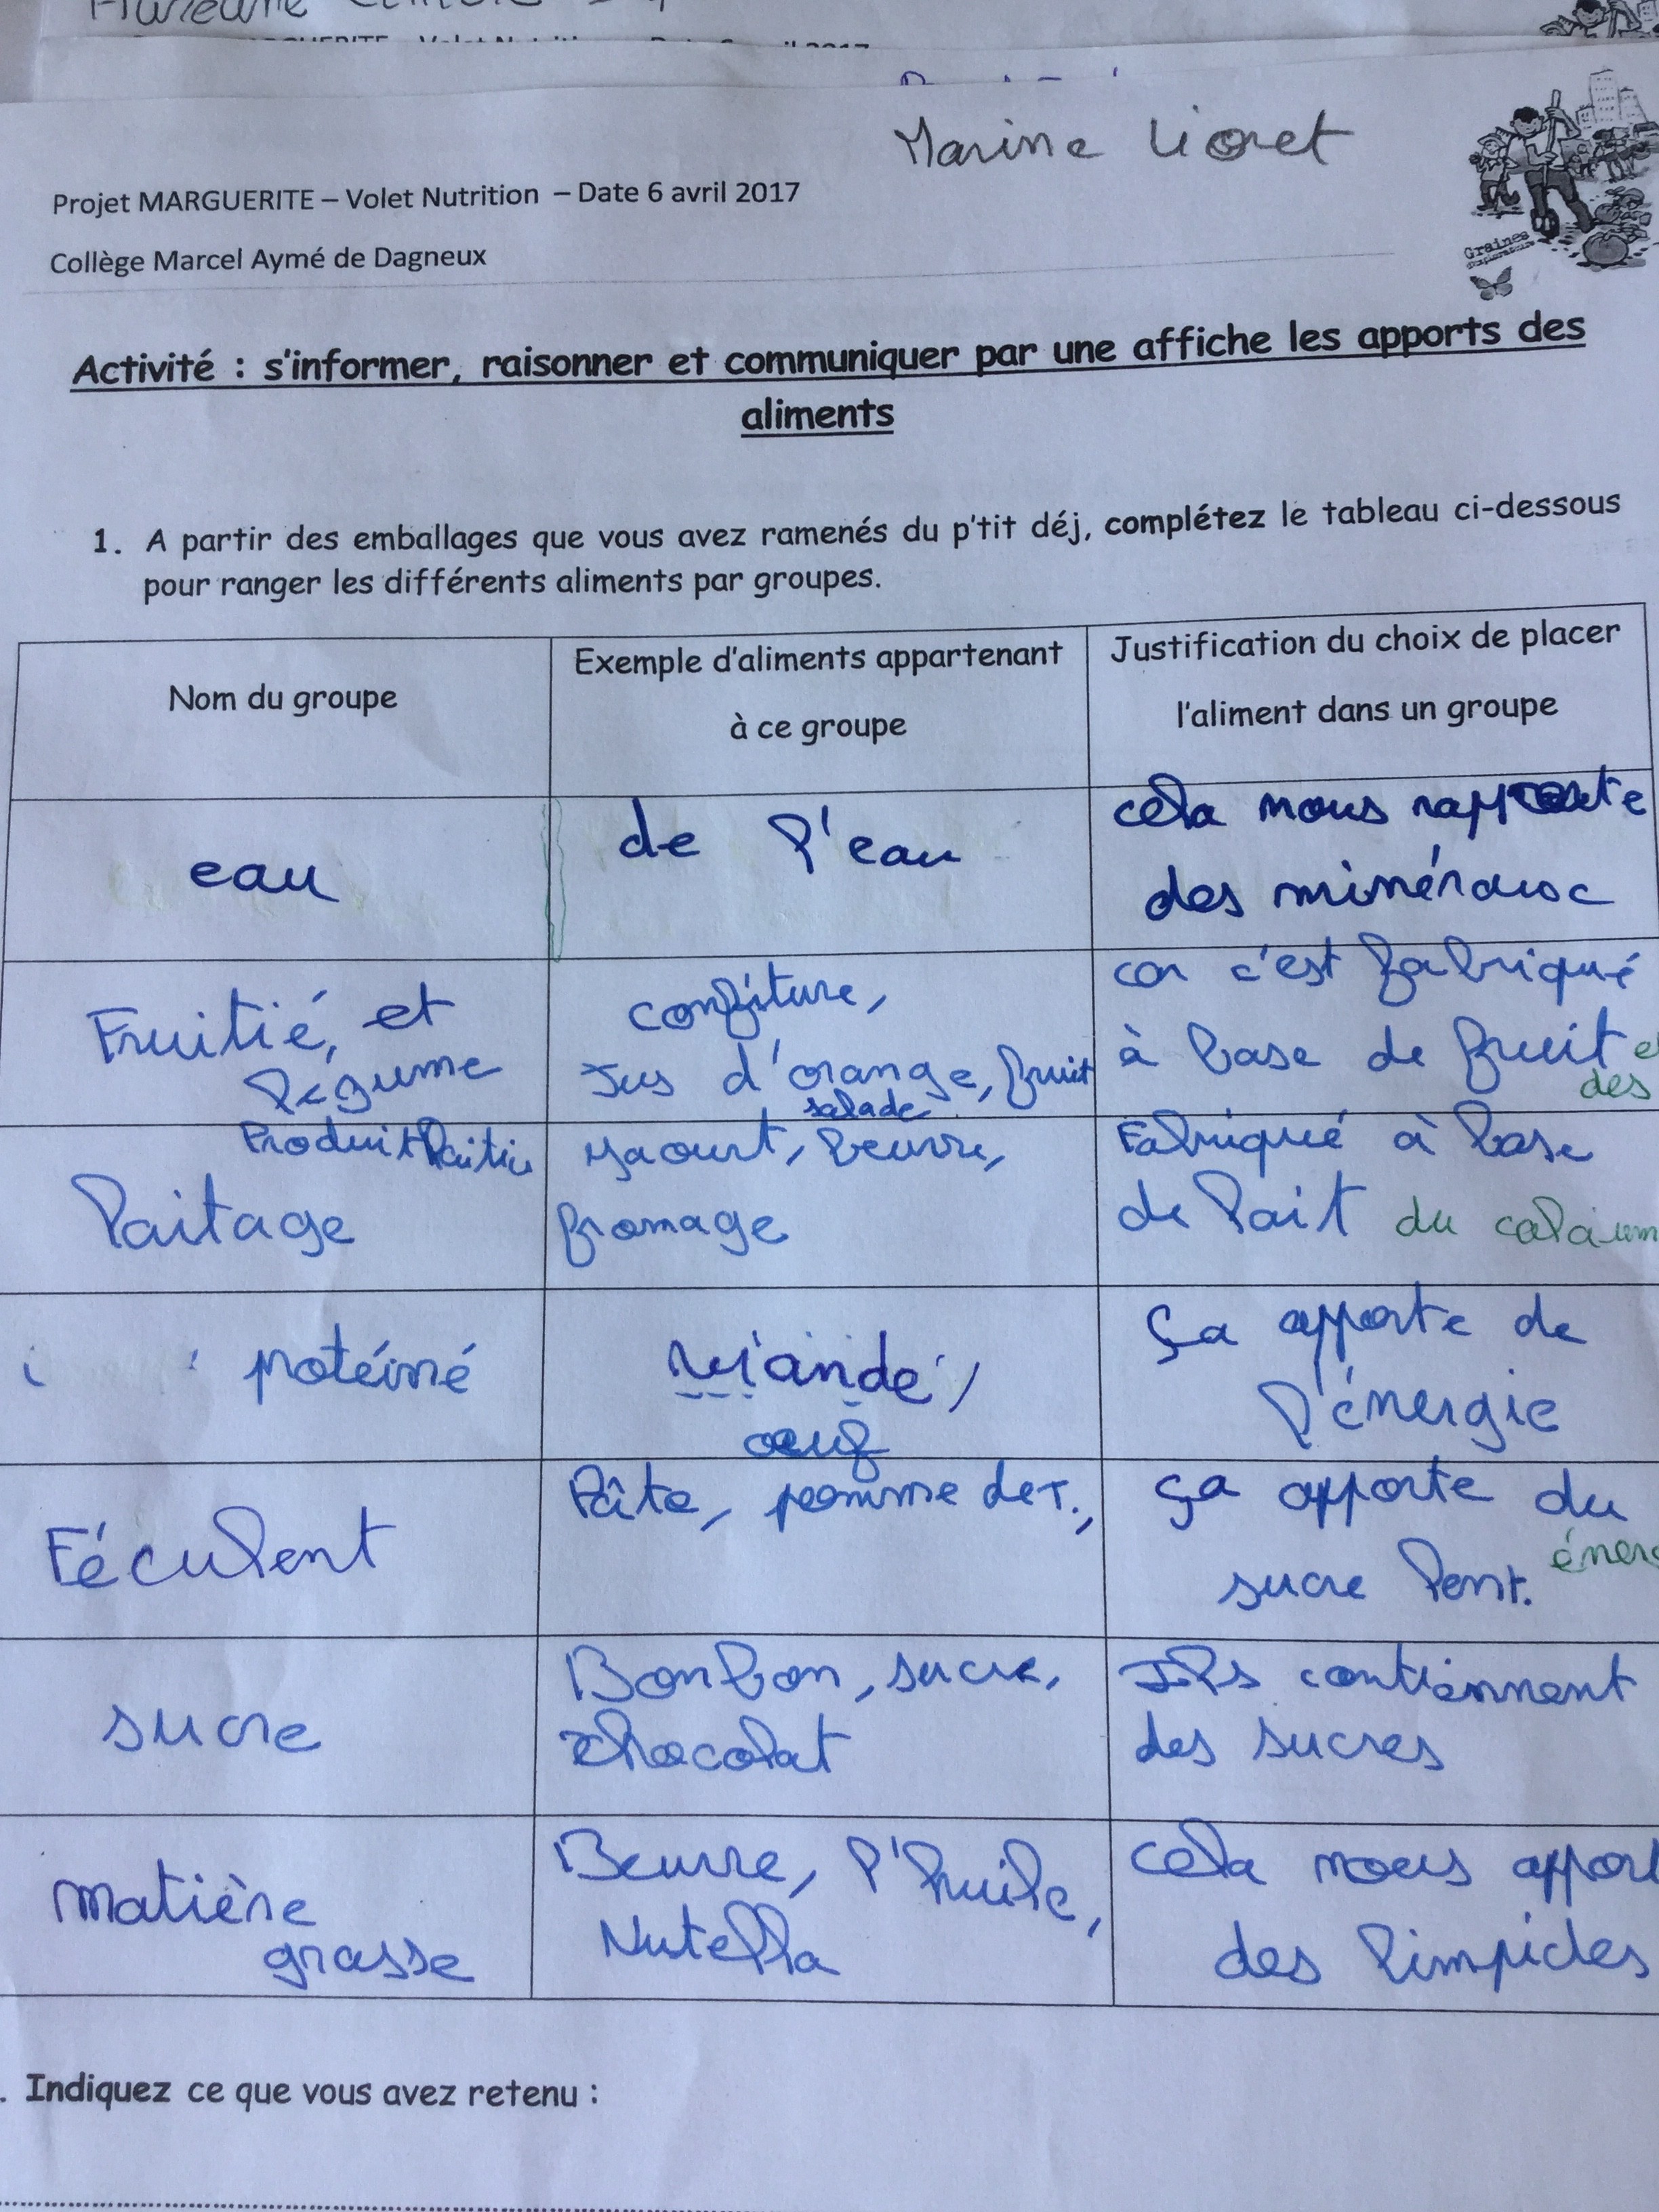 Marine Lioret
Projet MARGUERITE – Volet Nutrition – Date 6 avril 2017
Collège Marcel Aymé de Dagneux
Graines
Activité : s'informer, raisonner et communiquer par une affiche les apports des
aliments
1. A partir des emballages que vous avez ramenés du p'tit déj, complétez le tableau ci-dessous
pour ranger les différents aliments par groupes.
Nom du groupe
Exemple d'aliments appartenant
à ce groupe
Justification du choix de placer
l'aliment dans un groupe
eau
de l'eau
cela nous rapporte
des minéraux
Fruitié, et
légume
confiture,
Jus d'orange, fruit
salade
car c'est fabriqué
à base de fruit e
des
Produit laitié
laitage
yaourt, beurre,
fromage
Fabriqué à base
de lait du calcium
protéiné
viande,
oeuf
ça apporte de
l'énergie
Féculent
Pâte, pomme de T.,
ça apporte du
sucre lent. éner
sucre
Bonbon, sucre,
chocolat
Ils contiennent
des sucres
matière
grasse
Beurre, l'huile,
Nutella
cela nous apport
des limpides
. Indiquez ce que vous avez retenu :